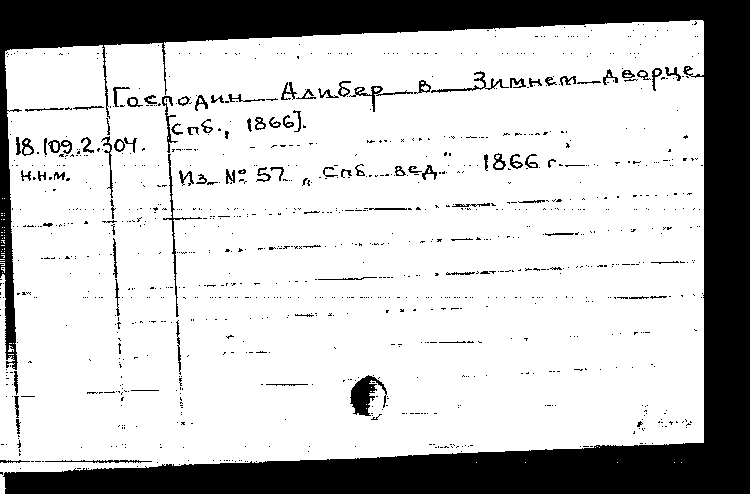 Господин Алибер в Зимнем дворце
[Спб., 1866].
18.109.2.304.
н.н.м.
Из № 57 „Спб. вед." 1866 г.